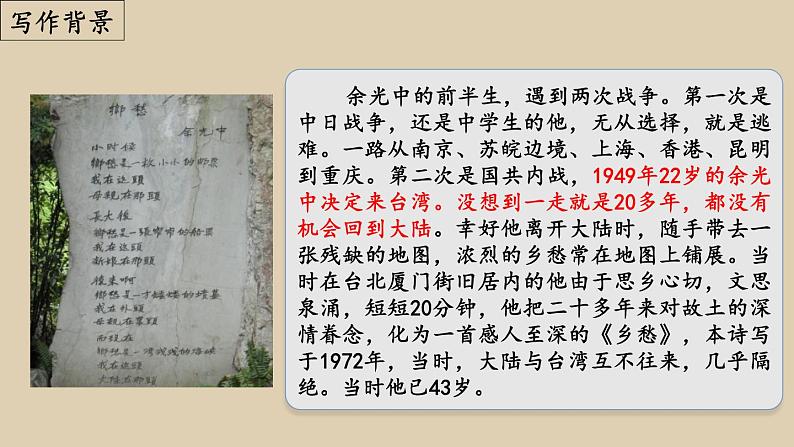 写作背景
鄉愁
余光中
小时候
鄉愁是一枚小小的邮票
我在这頭
母親在那頭
長大後
鄉愁是一張窄窄的船票
我在这頭
新娘在那頭
後来啊
鄉愁是一方矮矮的墳墓
我在外頭
母親在裏頭
而現在
鄉愁是一湾浅浅的海峡
我在这頭
大陸在那頭
余光中的前半生，遇到两次战争。第一次是
中日战争，还是中学生的他，无从选择，就是逃
难。一路从南京、苏皖边境、上海、香港、昆明
到重庆。第二次是国共内战，1949年22岁的余光
中决定来台湾。没想到一走就是20多年，都没有
机会回到大陆。幸好他离开大陆时，随手带去一
张残缺的地图，浓烈的乡愁常在地图上铺展。当
时在台北厦门街旧居内的他由于思乡心切，文思
泉涌，短短20分钟，他把二十多年来对故土的深
情眷念，化为一首感人至深的《乡愁》，本诗写
于1972年，当时，大陆与台湾互不往来，几乎隔
绝。当时他已43岁。